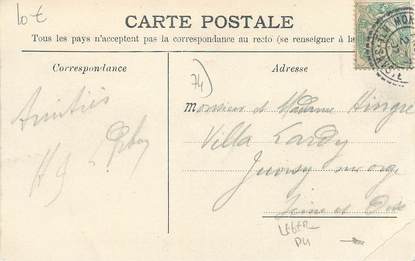 10 €
CARTE POSTALE
Tous les pays n'acceptent pas la correspondance au recto (se renseigner à la
Correspondance
Adresse
74)
Amitiés
Monsieur et Madame Hingre
Villa Lardy
Juvisy sur orge
Seine et Oise
LEGER